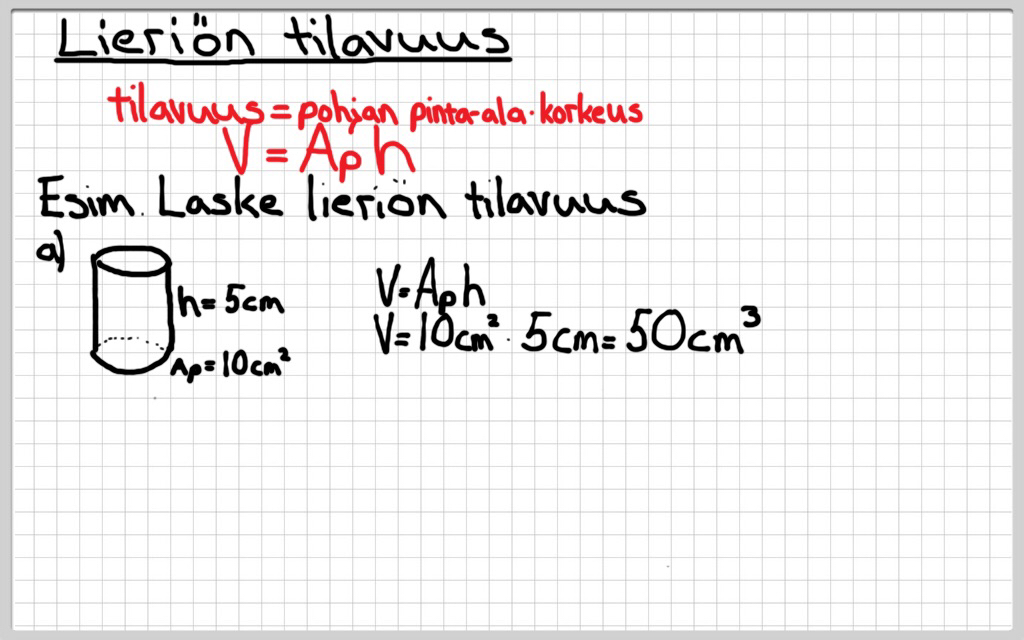 Lieriön tilavuus
tilavuus = pohjan pinta-ala · korkeus
V = Aₚ h
Esim. Laske lieriön tilavuus
a)
h = 5cm
Aₚ = 10cm²
V = Aₚh
V = 10cm² · 5cm = 50cm³